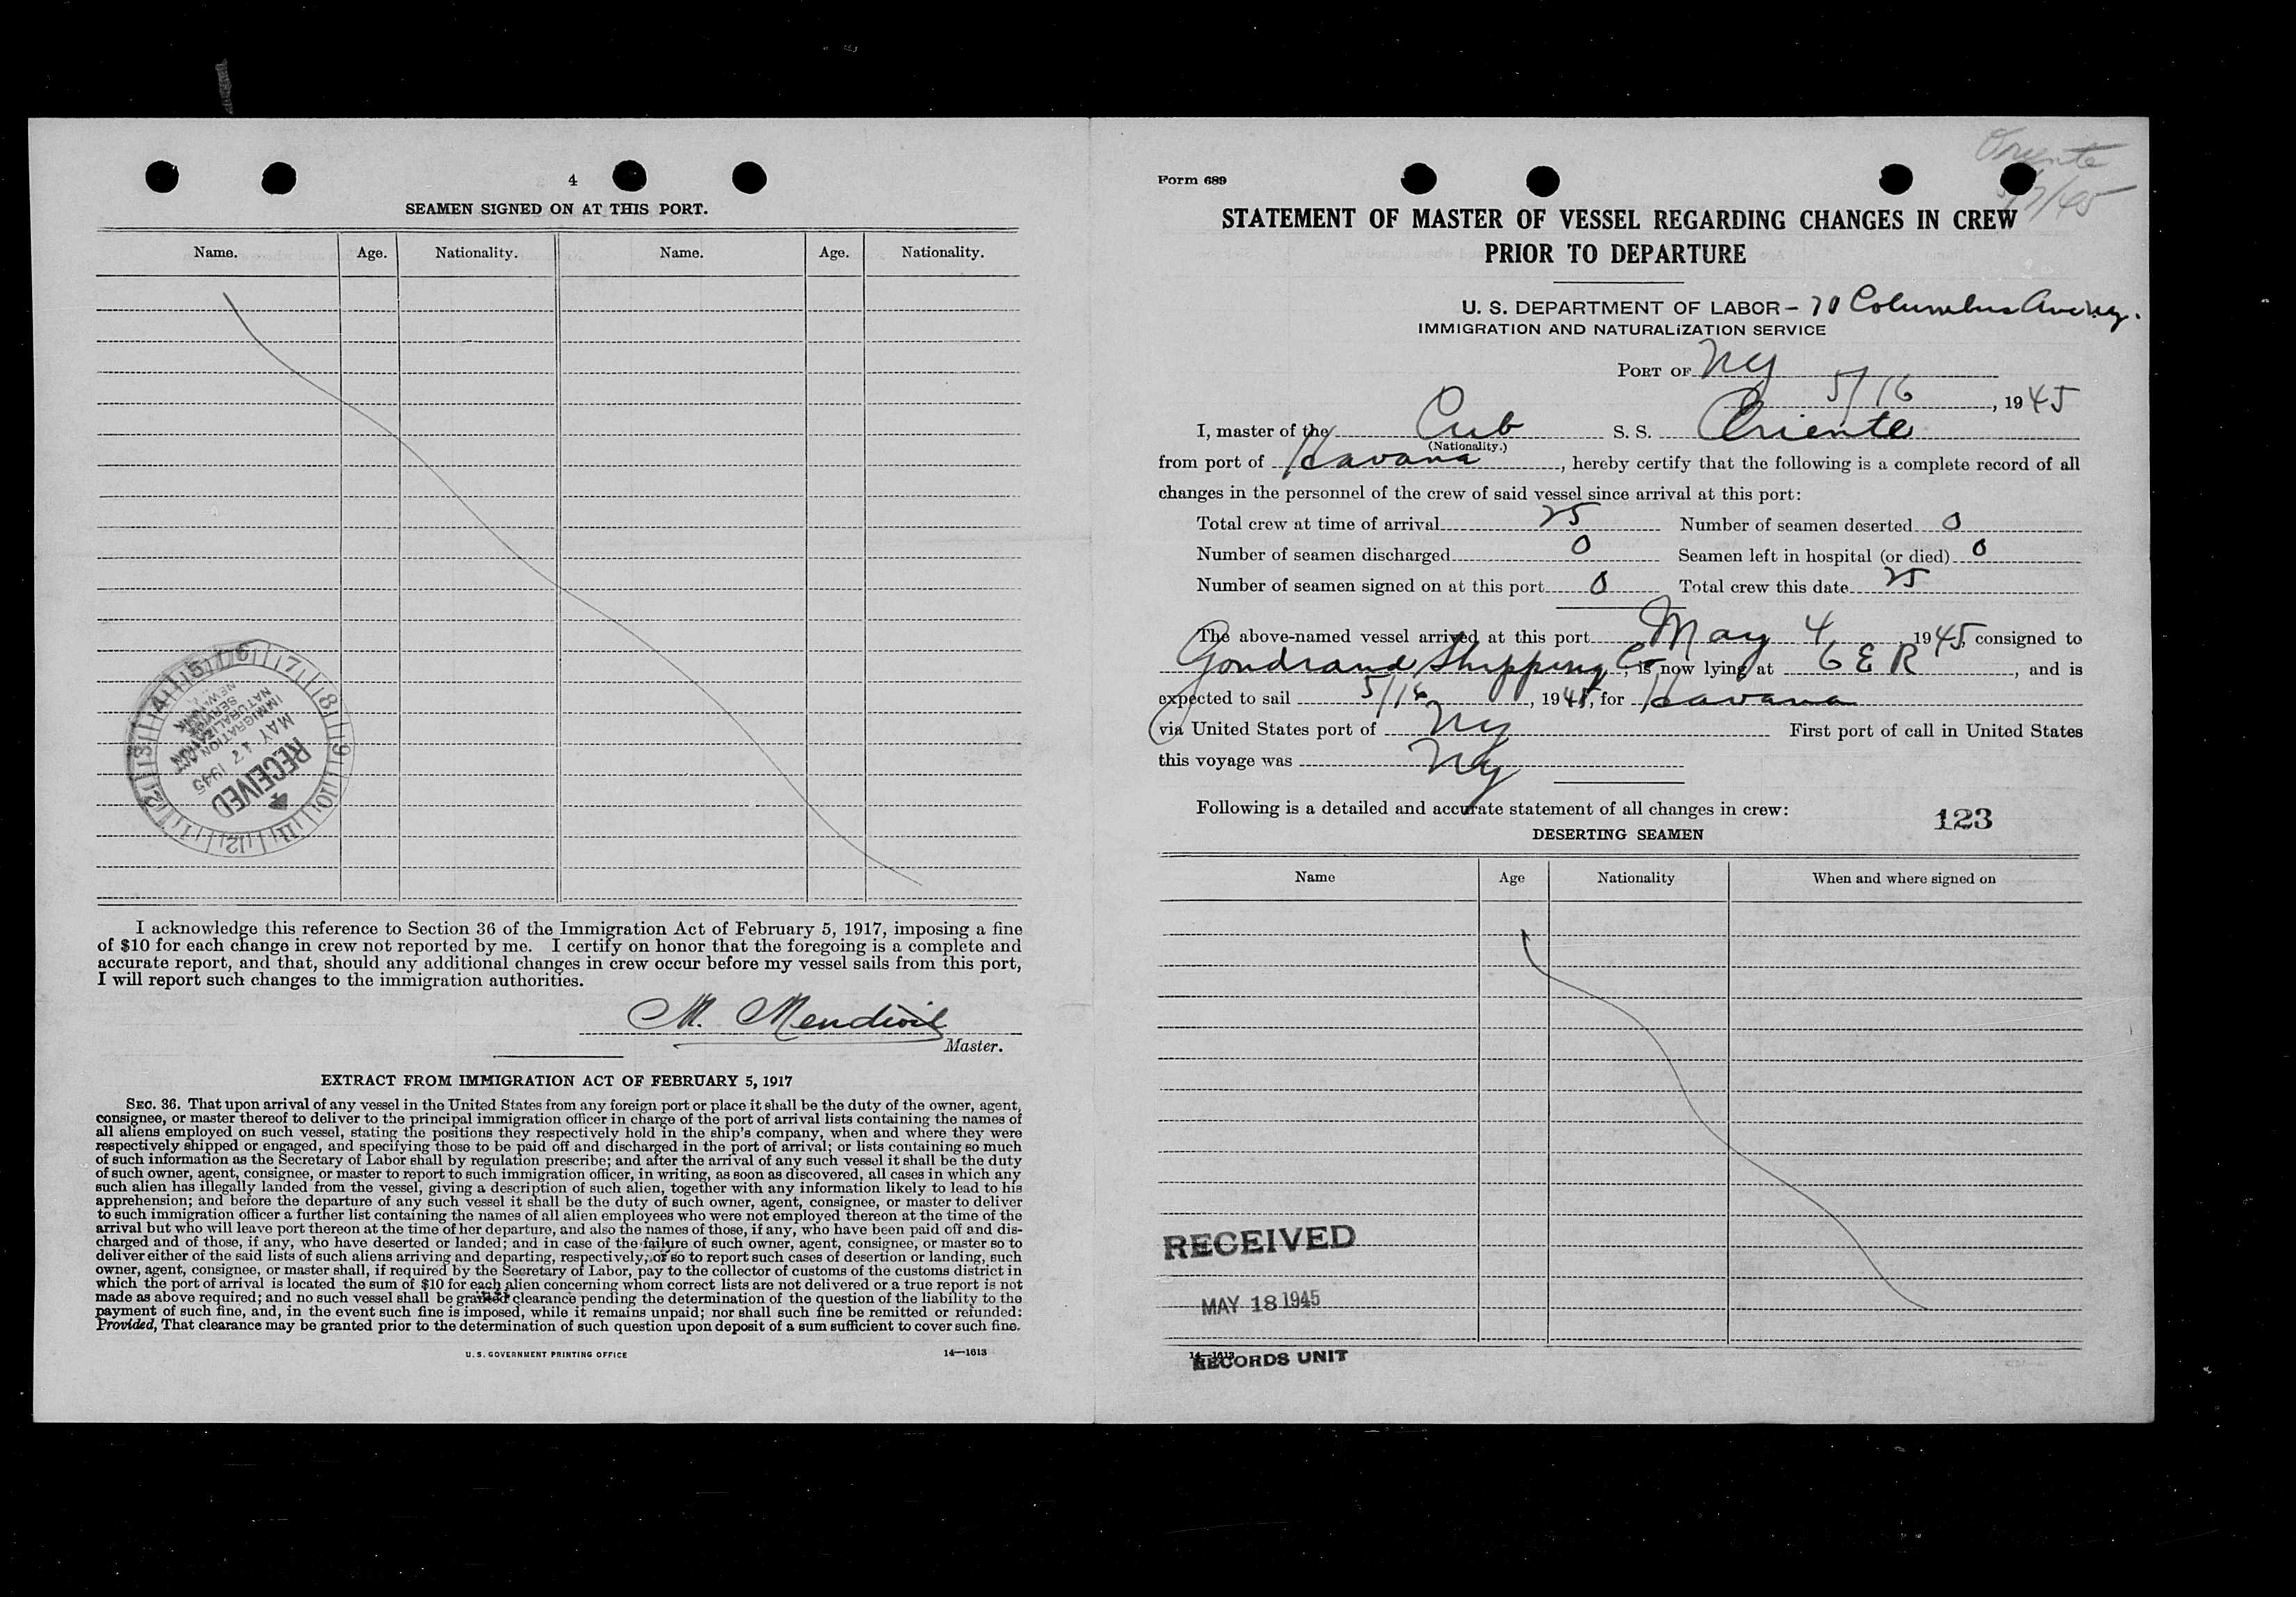 4
SEAMEN SIGNED ON AT THIS PORT.
Name. Age. Nationality. Name. Age. Nationality.
RECEIVED
MAY 17 1945
IMMIGRATION
NATURALIZATION
SERVICE
NEW YORK
I acknowledge this reference to Section 36 of the Immigration Act of February 5, 1917, imposing a fine
of $10 for each change in crew not reported by me. I certify on honor that the foregoing is a complete and
accurate report, and that, should any additional changes in crew occur before my vessel sails from this port,
I will report such changes to the immigration authorities.
M. Mendivil
Master.
EXTRACT FROM IMMIGRATION ACT OF FEBRUARY 5, 1917
SEC. 36. That upon arrival of any vessel in the United States from any foreign port or place it shall be the duty of the owner, agent,
consignee, or master thereof to deliver to the principal immigration officer in charge of the port of arrival lists containing the names of
all aliens employed on such vessel, stating the positions they respectively hold in the ship's company, when and where they were
respectively shipped or engaged, and specifying those to be paid off and discharged in the port of arrival; or lists containing so much
of such information as the Secretary of Labor shall by regulation prescribe; and after the arrival of any such vessel it shall be the duty
of such owner, agent, consignee, or master to report to such immigration officer, in writing, as soon as discovered, all cases in which any
such alien has illegally landed from the vessel, giving a description of such alien, together with any information likely to lead to his
apprehension; and before the departure of any such vessel it shall be the duty of such owner, agent, consignee, or master to deliver
to such immigration officer a further list containing the names of all alien employees who were not employed thereon at the time of the
arrival but who will leave port thereon at the time of her departure, and also the names of those, if any, who have been paid off and dis-
charged and of those, if any, who have deserted or landed; and in case of the failure of such owner, agent, consignee, or master so to
deliver either of the said lists of such aliens arriving and departing, respectively, or so to report such cases of desertion or landing, such
owner, agent, consignee, or master shall, if required by the Secretary of Labor, pay to the collector of customs of the customs district in
which the port of arrival is located the sum of $10 for each alien concerning whom correct lists are not delivered or a true report is not
made as above required; and no such vessel shall be granted clearance pending the determination of the question of the liability to the
payment of such fine, and, in the event such fine is imposed, while it remains unpaid; nor shall such fine be remitted or refunded:
Provided, That clearance may be granted prior to the determination of such question upon deposit of a sum sufficient to cover such fine.
U. S. GOVERNMENT PRINTING OFFICE 14—1613
Oriente
5/17/45
Form 689
STATEMENT OF MASTER OF VESSEL REGARDING CHANGES IN CREW
PRIOR TO DEPARTURE
U. S. DEPARTMENT OF LABOR – 70 Columbus Ave
IMMIGRATION AND NATURALIZATION SERVICE
PORT OF NY
5/16, 1945
I, master of the Cub S. S. Oriente
(Nationality.)
from port of Havana, hereby certify that the following is a complete record of all
changes in the personnel of the crew of said vessel since arrival at this port:
Total crew at time of arrival 25 Number of seamen deserted 0
Number of seamen discharged 0 Seamen left in hospital (or died) 0
Number of seamen signed on at this port 0 Total crew this date 25
The above-named vessel arrived at this port May 4, 1945, consigned to
Gondrand Shipping Co, is now lying at 6 E R, and is
expected to sail 5/16, 1945, for Havana
via United States port of NY First port of call in United States
this voyage was NY
Following is a detailed and accurate statement of all changes in crew:
123
DESERTING SEAMEN
Name Age Nationality When and where signed on
RECEIVED
MAY 18 1945
14—1613
RECORDS UNIT